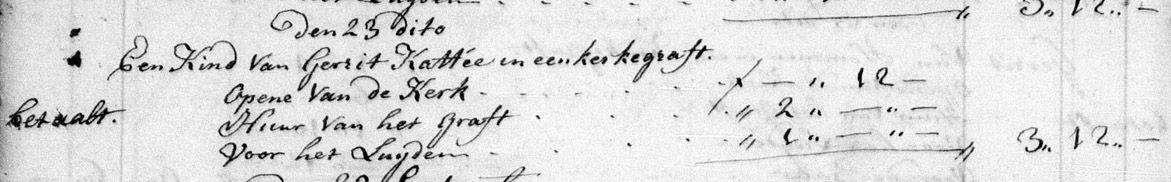 3,, 12,, —
Den 23 dito
Een Kind van Gerrit Kattée in een kerkegraft.
Opene van de Kerk - - - - - ƒ — ,, 12 —
betaalt. Huur van het graft - - - - ,, 2 ,, — ,, —
Voor het Luyden - - - - ,, 1 ,, — ,, — ,, 3,, 12,, —